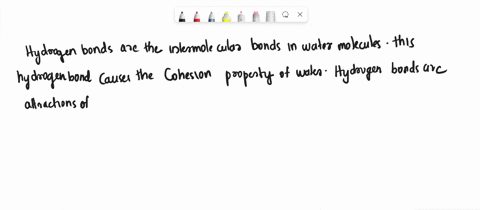 Hydrogen bonds are the intermolecular bonds in water molecules. this
hydrogen bond causes the Cohesion property of water. Hydrogen bonds are
attractions of